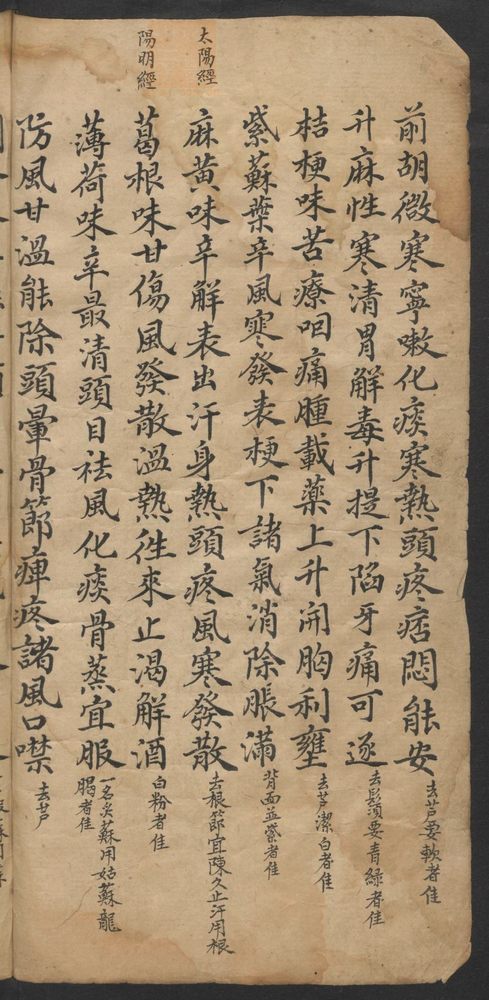 前胡微寒寧嗽化痰寒熱頭疼痞悶能安
去芦要軟者佳
升麻性寒清胃解毒升提下陷牙痛可逐
去鬚要青綠者佳
桔梗味苦療咽痛腫載藥上升開胸利壅
去芦潔白者佳
紫蘇葉辛風寒發表梗下諸氣消除脹滿
背面並紫者佳
太陽經
麻黃味辛解表出汗身熱頭疼風寒發散
去根節宜陳久止汗用根
陽明經
葛根味甘傷風發散溫熱徃來止渴解酒
白粉者佳
薄荷味辛最清頭目祛風化痰骨蒸宜服
一名炎蘇用姑蘇龍
腦者佳
防風甘溫能除頭暈骨節痺疼諸風口噤
去芦